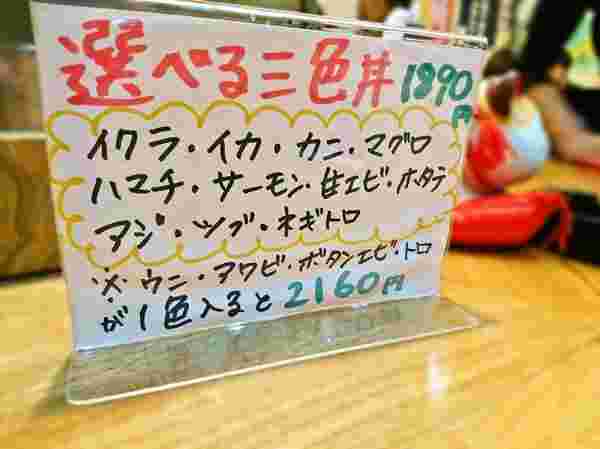 選べる三色丼 1890円
イクラ・イカ・カニ・マグロ
ハマチ・サーモン・甘エビ・ホタテ
アジ・ツブ・ネギトロ
※ウニ・アワビ・ボタンエビ・トロ
が1色入ると2160円